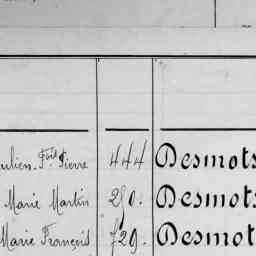 ulien-Fois Pierre 444 Desmots
Marie Martin 290. Desmots
Marie François 729. Desmot